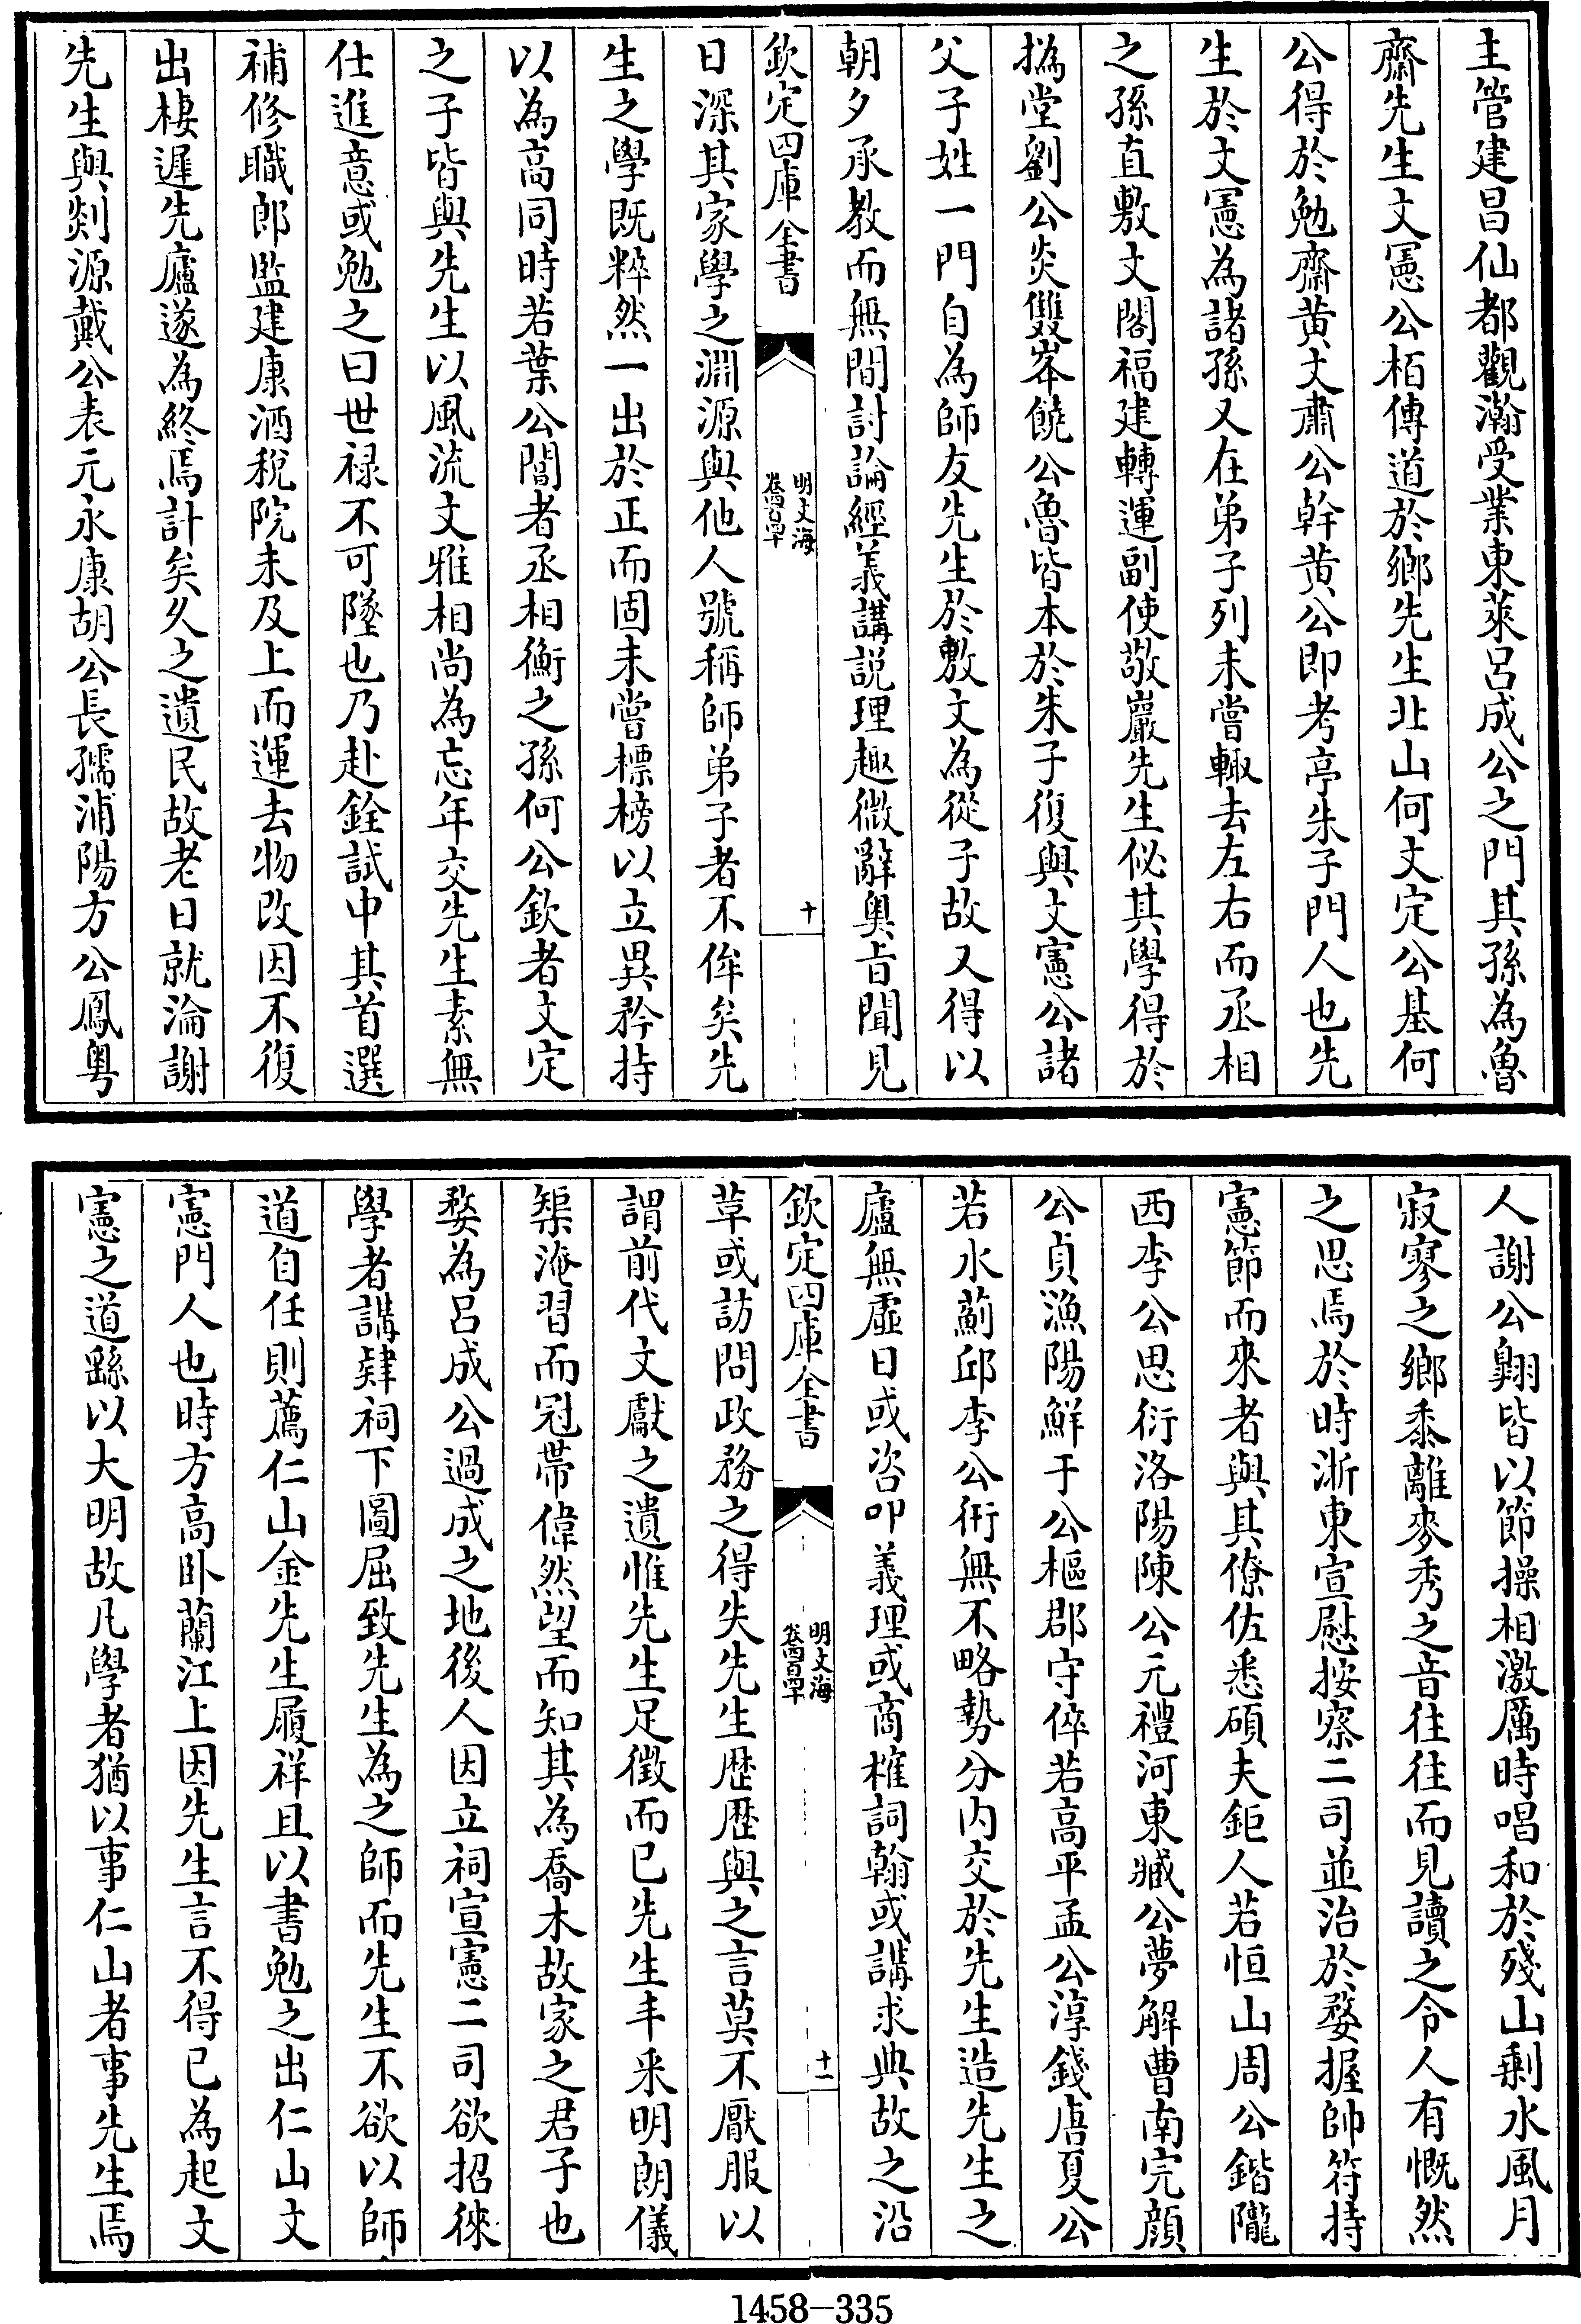 主管建昌仙都觀瀚受業東萊呂成公之門其孫為魯
齋先生文憲公柏傳道於鄉先生北山何文定公基何
公得於勉齋黄文肅公幹黄公即考亭朱子門人也先
生於文憲為諸孫又在弟子列未嘗輙去左右而丞相
之孫直敷文閣福建轉運副使敬巖先生佖其學得於
撝堂劉公炎雙峯饒公魯皆本於朱子復與文憲公諸
父子姓一門自為師友先生於敷文為從子故又得以
朝夕承教而無間討論經義講説理趣微辭奥旨聞見
欽定四庫全書
明文海
卷四百四十
十
日深其家學之淵源與他人號稱師弟子者不侔矣先
生之學既粹然一出於正而固未嘗標榜以立異矜持
以為高同時若葉公誾者丞相衡之孫何公欽者文定
之子皆與先生以風流文雅相尚為忘年交先生素無
仕進意或勉之曰世禄不可墜也乃赴銓試中其首選
補修職郎監建康酒税院未及上而運去物改因不復
出棲遲先廬遂為終焉計矣久之遺民故老日就淪謝
先生與剡源戴公表元永康胡公長孺浦陽方公鳳粤
人謝公翺皆以節操相激厲時唱和於殘山剩水風月
寂寥之鄉黍離麥秀之音往往而見讀之令人有慨然
之思焉於時浙東宣慰按察二司並治於婺握帥符持
憲節而來者與其僚佐悉碩夫鉅人若恒山周公鍇隴
西李公思衍洛陽陳公元禮河東臧公夢解曹南完顔
公貞漁陽鮮于公樞郡守倅若高平孟公淳錢唐夏公
若水薊邱李公衎無不略勢分内交於先生造先生之
廬無虛日或咨叩義理或商榷詞翰或講求典故之沿
欽定四庫全書
明文海
卷四百四十
十一
草或訪問政務之得失先生歷歷與之言莫不厭服以
謂前代文獻之遺惟先生足徵而已先生丰采明朗儀
榘淹習而冠帶偉然望而知其為喬木故家之君子也
婺為呂成公過成之地後人因立祠宣憲二司欲招徠
學者講肄祠下圖屈致先生為之師而先生不欲以師
道自任則薦仁山金先生履祥且以書勉之出仁山文
憲門人也時方高卧蘭江上因先生言不得已為起文
憲之道繇以大明故凡學者猶以事仁山者事先生焉
1458—335